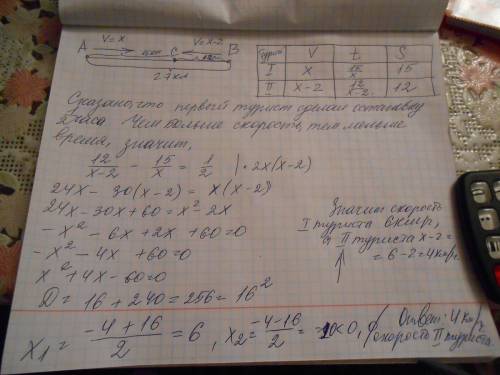 V=x V=x-2
A C B
15км 12км
27км
Турист V t S
I x 15/x 15
II x-2 12/x-2 12
Сказано, что первый турист сделал остановку
Чем больше скорость, тем меньше
время, значит,
12/x-2 - 15/x = 1/2 | · 2x(x-2)
24x - 30(x-2) = x(x-2)
24x - 30x + 60 = x² - 2x
-x² - 6x + 2x + 60 = 0
-x² - 4x + 60 = 0
x² + 4x - 60 = 0
D = 16 + 240 = 256 = 16²
x₁ = -4+16/2 = 6, x₂ = -4-16/2 = -10 < 0,
Значит скорость
I туриста 6 км/ч,
а II туриста x-2=
=6-2=4км/ч
Ответ: 4 км/ч
(скорость II туриста.